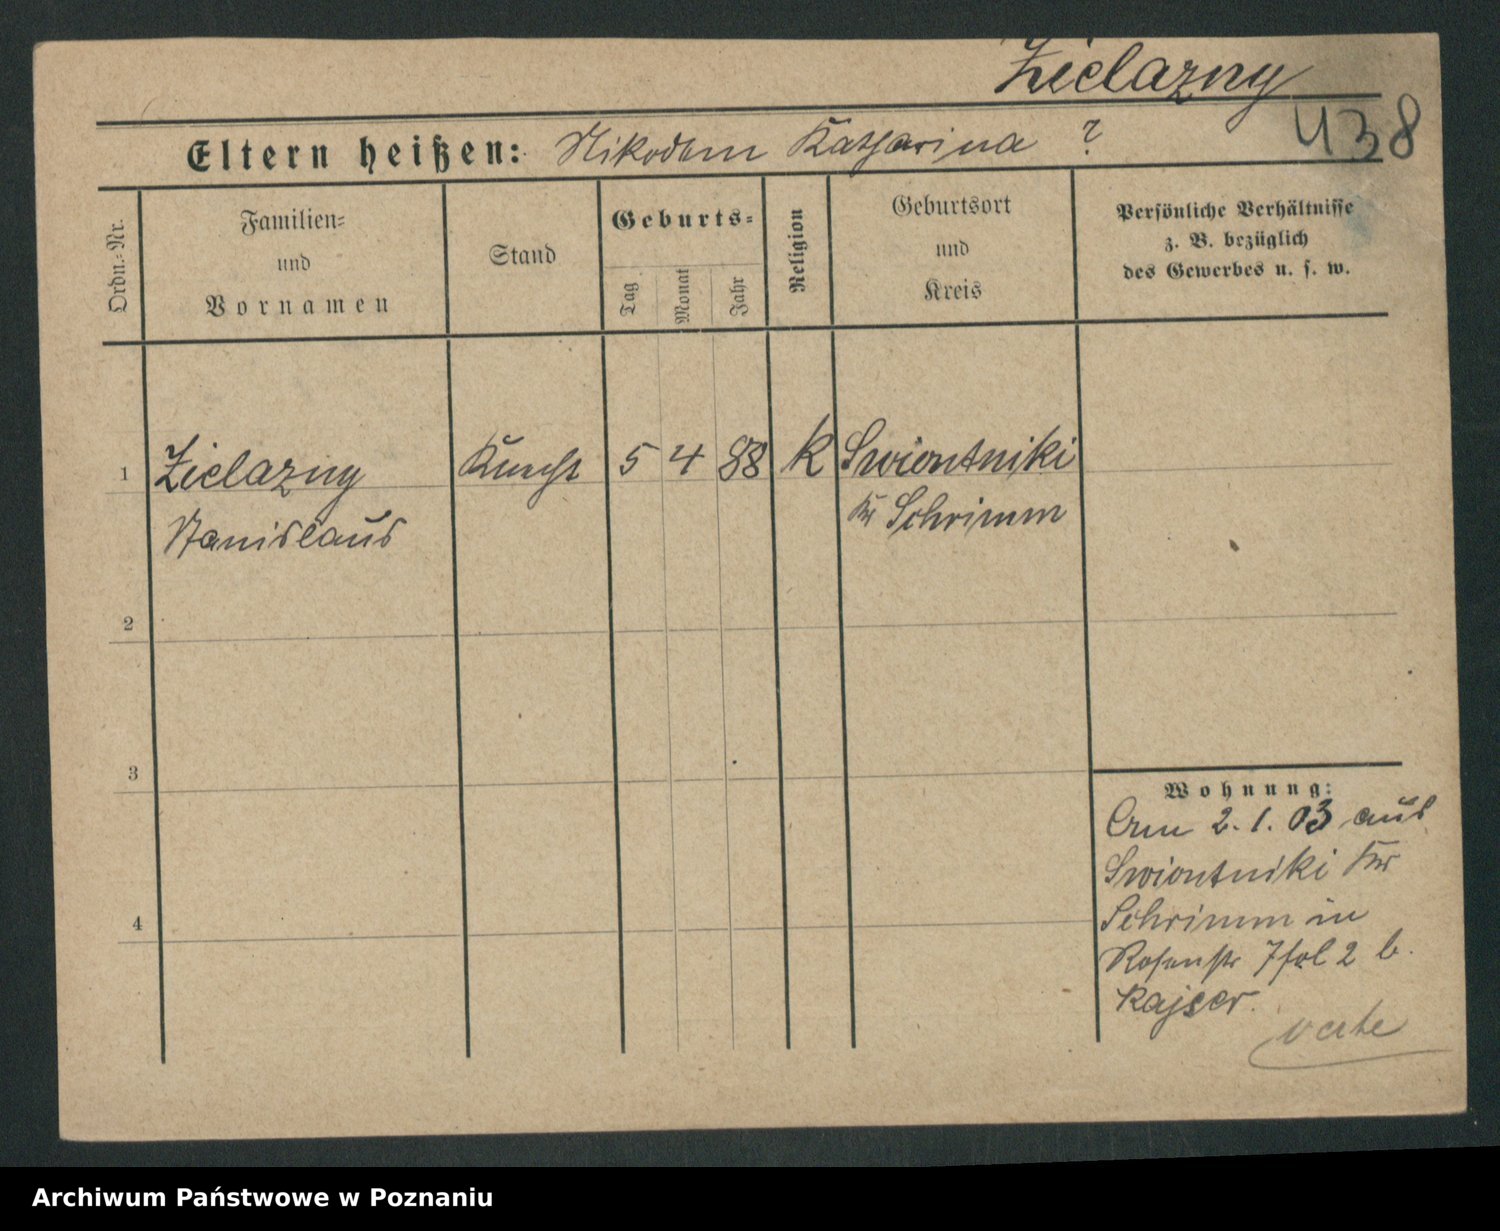 Zielazny
438
Eltern heißen: Nikodem Katharina ?
Ordn.-Nr.
Familien-
und
Vornamen
Stand
Geburts-
Tag
Monat
Jahr
Religion
Geburtsort
und
Kreis
Persönliche Verhältnisse
z. B. bezüglich
des Gewerbes u. s. w.
1 Zielazny Knecht 5 4 88 K Swiontniki
Stanislaus Kr Schrimm
2
3
4
Wohnung:
Am 2. 1. 03 aus
Swiontniki Kr
Schrimm in
Rosenstr 2 b.
Kajser.
verte
Archiwum Państwowe w Poznaniu